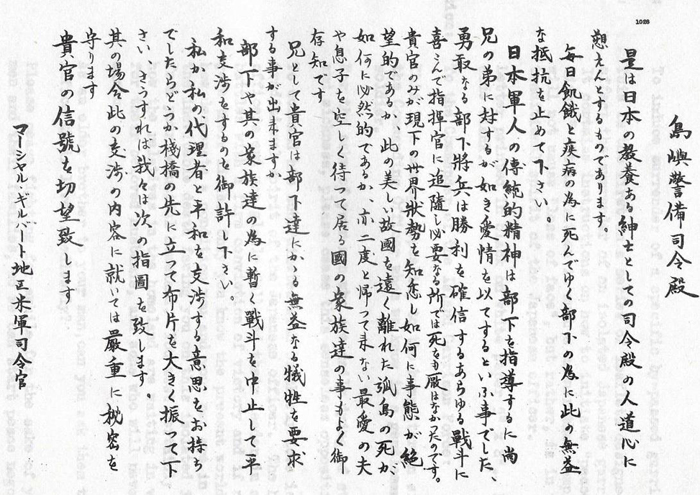 1028
島嶼警備司令殿
是は日本の教養ある紳士としての司令殿の人道心に
愬えんとするものであります。
毎日飢餓と疾病の為に死んでゆく部下の為に此の無益
な抵抗を止めて下さい。
日本軍人の傳統的精神は部下を指導するに尚
兄の弟に対するが如き愛情を以てするといふ事でした、
勇敢なる部下將兵は勝利を確信するあらゆる戰斗に
喜こんで指揮官に追隨し必要なる所では死をも厭はなかったのです。
貴官のみが現下の世界狀勢を知悉し如何に事態が絶
望的であるか、此の美しい故國を遠く離れた孤島の死が、
如何に必然的であるか、亦二度と帰って来ない最愛の夫
や息子を空しく待って居る國の家族達の事もよく御
存知です
兄として貴官は部下達にかゝる無益なる犠牲を要求
する事が出来ますか
部下や其の家族達の為に暫く戰斗を中止して平
和交渉をするのを御許し下さい。
私か私の代理者と平和を交渉する意思をお持ち
でしたらどうか棧橋の先に立って布片を大きく振って下
さい、さうすれば我々は次の指圖を致します。
其の場合此の交渉の内容に就いては嚴重に秘密を
守ります
貴官の信號を切望致します
マーシャル・ギルバート地区米軍司令官